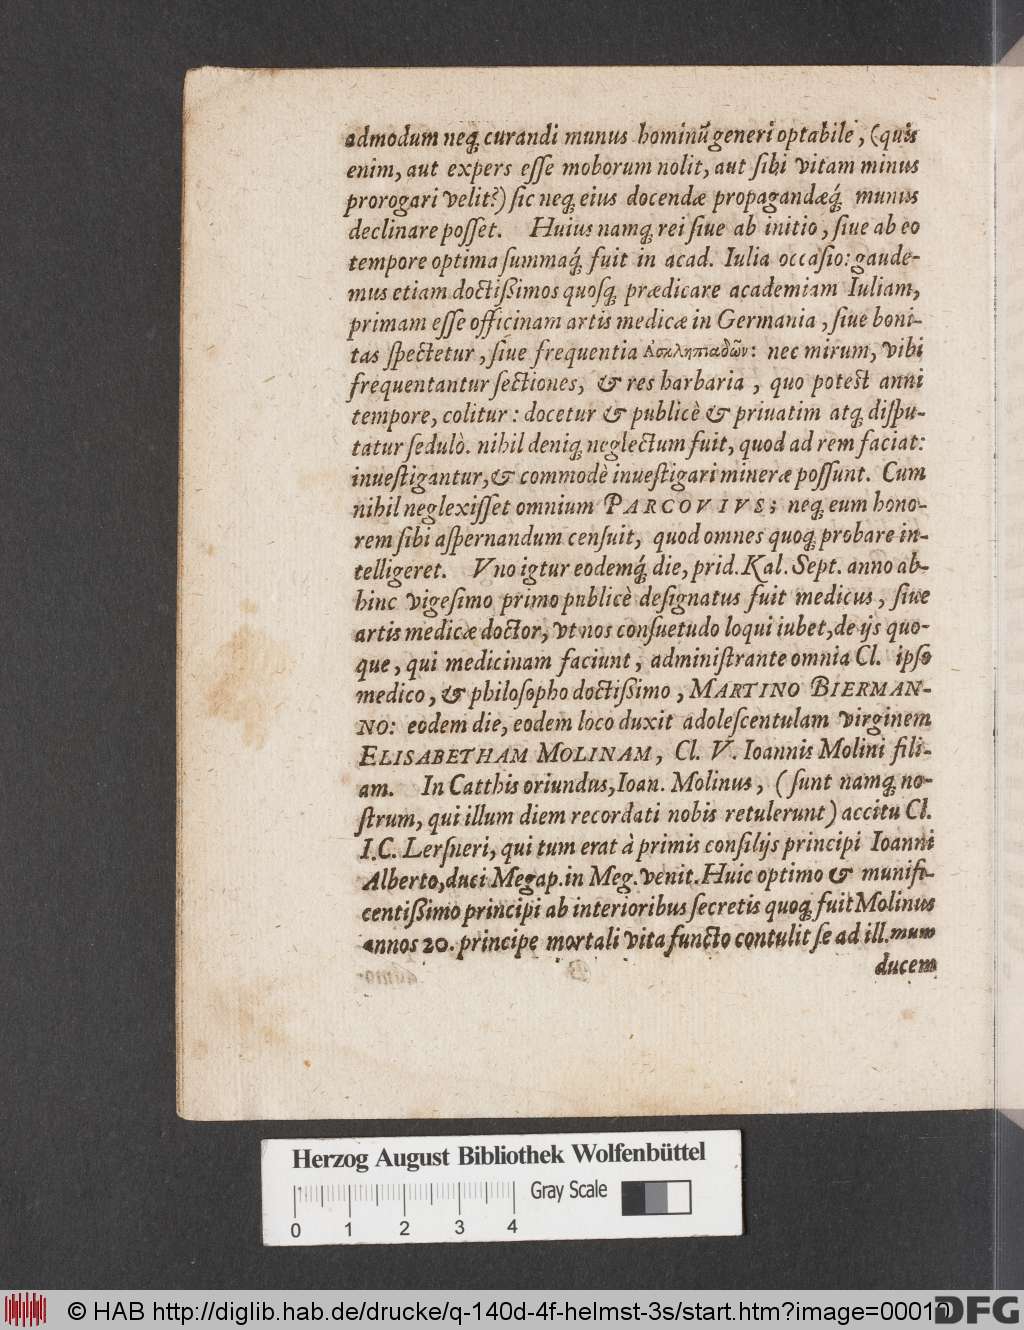 admodum neq́; curandi munus hominũ generi optabile, (quis
enim, aut expers eſſe moborum nolit, aut ſibi vitam minus
prorogari velit?) ſic neq; eius docendæ propagandæq́; munus
declinare poſſet. Huius namq; rei ſiue ab initio, ſiue ab eo
tempore optima ſummaq́; fuit in acad. Iulia occaſio: gaude-
mus etiam doctißimos quoſq; prædicare academiam Iuliam,
primam eſſe officinam artis medicæ in Germania, ſiue boni-
tas ſpectetur, ſiue frequentia Ἀσκληπιαδῶν: nec mirum, vibi
frequentantur ſectiones, & res harbaria, quo poteſt anni
tempore, colitur: docetur & publicè & priuatim atq; diſpu-
tatur ſedulò. nihil deniq; neglectum fuit, quod ad rem faciat:
inueſtigantur, & commodè inueſtigari mineræ poſſunt. Cum
nihil neglexiſſet omnium PARCOVIVS; neq; eum hono-
rem ſibi aſpernandum cenſuit, quod omnes quoq; probare in-
telligeret. Vno igtur eodemq́; die, prid. Kal. Sept. anno ab-
hinc vigeſimo primo publicè deſignatus fuit medicus, ſiue
artis medicæ doctor, vt nos conſuetudo loqui iubet, de ijs quo-
que, qui medicinam faciunt, adminiſtrante omnia Cl. ipſo
medico, & philoſopho doctißimo, MARTINO BIERMAN-
NO: eodem die, eodem loco duxit adoleſcentulam virginem
ELISABETHAM MOLINAM, Cl. V. Ioannis Molini fili-
am. In Catthis oriundus, Ioan. Molinus, (ſunt namq; no-
ſtrum, qui illum diem recordati nobis retulerunt) accitu Cl.
I.C. Lerſneri, qui tum erat à primis conſilijs principi Ioanni
Alberto, duci Megap. in Meg. venit. Huic optimo & munifi-
centißimo principi ab interioribus ſecretis quoq; fuit Molinus
annos 20. principe mortali vita functo contulit ſe ad ill.mum
ducem
Herzog August Bibliothek Wolfenbüttel
Gray Scale
0 1 2 3 4
© HAB http://diglib.hab.de/drucke/q-140d-4f-helmst-3s/start.htm?image=00010
DFG